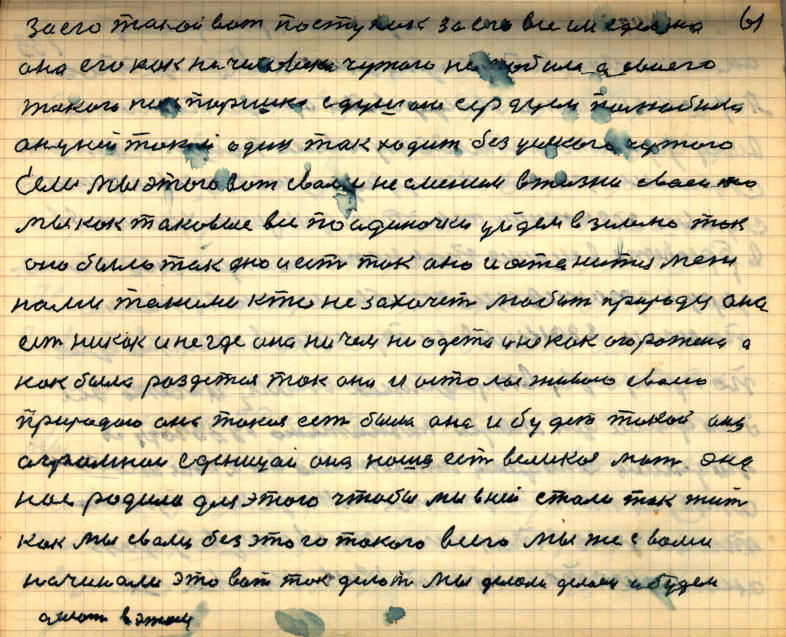 за его такой вот поступок за его все им сделана 61
она его как на человека чужого не любила а своего
такого сдушою сердцем полюбила
ануней такой один так ходит без усякого чужого
Если мы этого вот свами не сменим вжизни сваей то
мы как таковые все поодиночки уйдем вземлю так
оно было так оно и есть так оно и останится меж
нами такими кто не захочет любит природу она
ест никак и негде она ни чем ни одета и некак огорожена а
как была роздетая так она и осталас живою сваею
природаю она такая ест была она и будет такой она
огромной еденицай она наша ест великая мат она
нас родила для этого чтобы мы вней стали так жит
как мы свами без этого такого всего мы же свами
начинали это вот так делат мы делали делаем и будем
делат вэтом